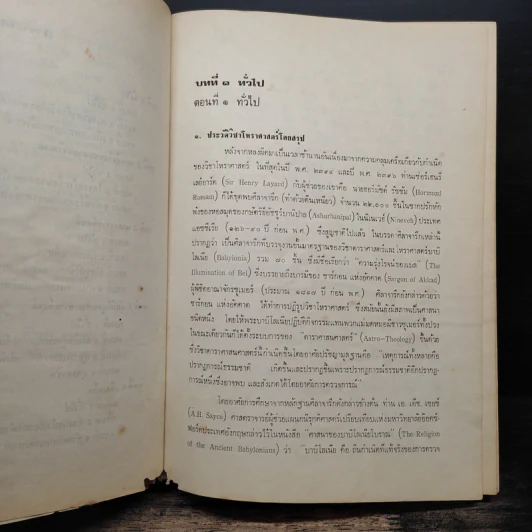 บทที่ ๑ ทั่วไป
ตอนที่ ๑ ทั่วไป
๑. ประวัติวิชาโหราศาสตร์โดยสรุป
หลังจากหลงผิดมาเป็นเวลาช้านานอันเนื่องมาจากความคลุมเครือเกี่ยวกับกำเนิด
ของวิชาโหราศาสตร์ ในที่สุดในปี พ.ศ. ๒๓๙๔ และปี พ.ศ. ๒๓๙๖ ท่านเซอร์เฮนรี่
เลย์ยาร์ด (Sir Henry Layard) กับผู้ช่วยของเขาคือ นายฮอร์มัซด์ รัซซัม (Hormuzd
Rassam) ก็ได้ขุดพบศิลาจารึก (ทำด้วยดินเหนียว) จำนวน ๒๒,๐๐๐ ชิ้นในซากปรักหัก
พังของหอสมุดของกษัตริย์อัชชูร์บานิปาล (Ashurbanipal) ในนิเนเวห์ (Nineveh) ประเทศ
แอซซีเรีย ปี ก่อน พ.ศ.) ซึ่งสูญชาติไปแล้ว ในบรรดาศิลาจารึกเหล่านี้
ปรากฏว่า เป็นศิลาจารึกที่บรรจุงานชั้นมาตรฐานของวิชาดาราศาสตร์และโหราศาสตร์บาบิ
โลเนีย (Babylonia) รวม ๗๐ ชิ้น ซึ่งมีชื่อเรียกว่า "ความรุ่งโรจน์ของเบล" (The
Illumination of Bel) ซึ่งบรรยายถึงบารมีของ ซาร์กอน แห่งอัคคาด (Sargon of Akkad)
ผู้พิชิตอาณาจักรซูเมอร์ (ประมาณ ปี ก่อน พ.ศ.) ศิลาจารึกดังกล่าวอ้างว่า
ซาร์กอน แห่งอัคคาด ได้ทำการปฏิรูปวิชาโหราศาสตร์ ซึ่งสมัยนั้นยังมีสภาพเป็นศาสนา
ชนิดหนึ่ง โดยให้พระบาบิโลเนียปฏิบัติกิจกรรมแทนพวกแม่มดหมอผีชาวซูเมอร์ทั้งปวง
ในขณะเดียวกันก็ได้ตั้งระบบการของ "ดาราศาสนศาสตร์" (Astro-Theology) ขึ้นด้วย
ซึ่งวิชาดาราศาสนศาสตร์นี้กำเนิดขึ้นโดยอาศัยปรัชญามูลฐานคือ "เหตุการณ์ทั้งหลายคือ
ปรากฏการณ์ธรรมชาติ เกิดขึ้นและปรากฏขึ้นเพราะปรากฏการณ์ธรรมชาติอีกปรากฏ-
การณ์หนึ่งซึ่งอาจพบ และสังเกตได้โดยอาศัยการตรวจการณ์"
โดยอาศัยการศึกษาจากหลักฐานศิลาจารึกดังกล่าวข้างต้น ท่าน เอ. เอ็ช. เซย์ซ์
(A.H. Sayce) ศาสตราจารย์ผู้ช่วยแผนกนิรุกติศาสตร์เปรียบเทียบแห่งมหาวิทยาลัยอ๊อกซ์
ฟอร์ดประเทศอังกฤษกล่าวไว้ในหนังสือ "ศาสนาของบาบิโลเนียโบราณ" (The Religion
of the Ancient Babylonians) ว่า "บาบิโลเนีย คือ ถิ่นกำเนิดที่แท้จริงของการตรวจ